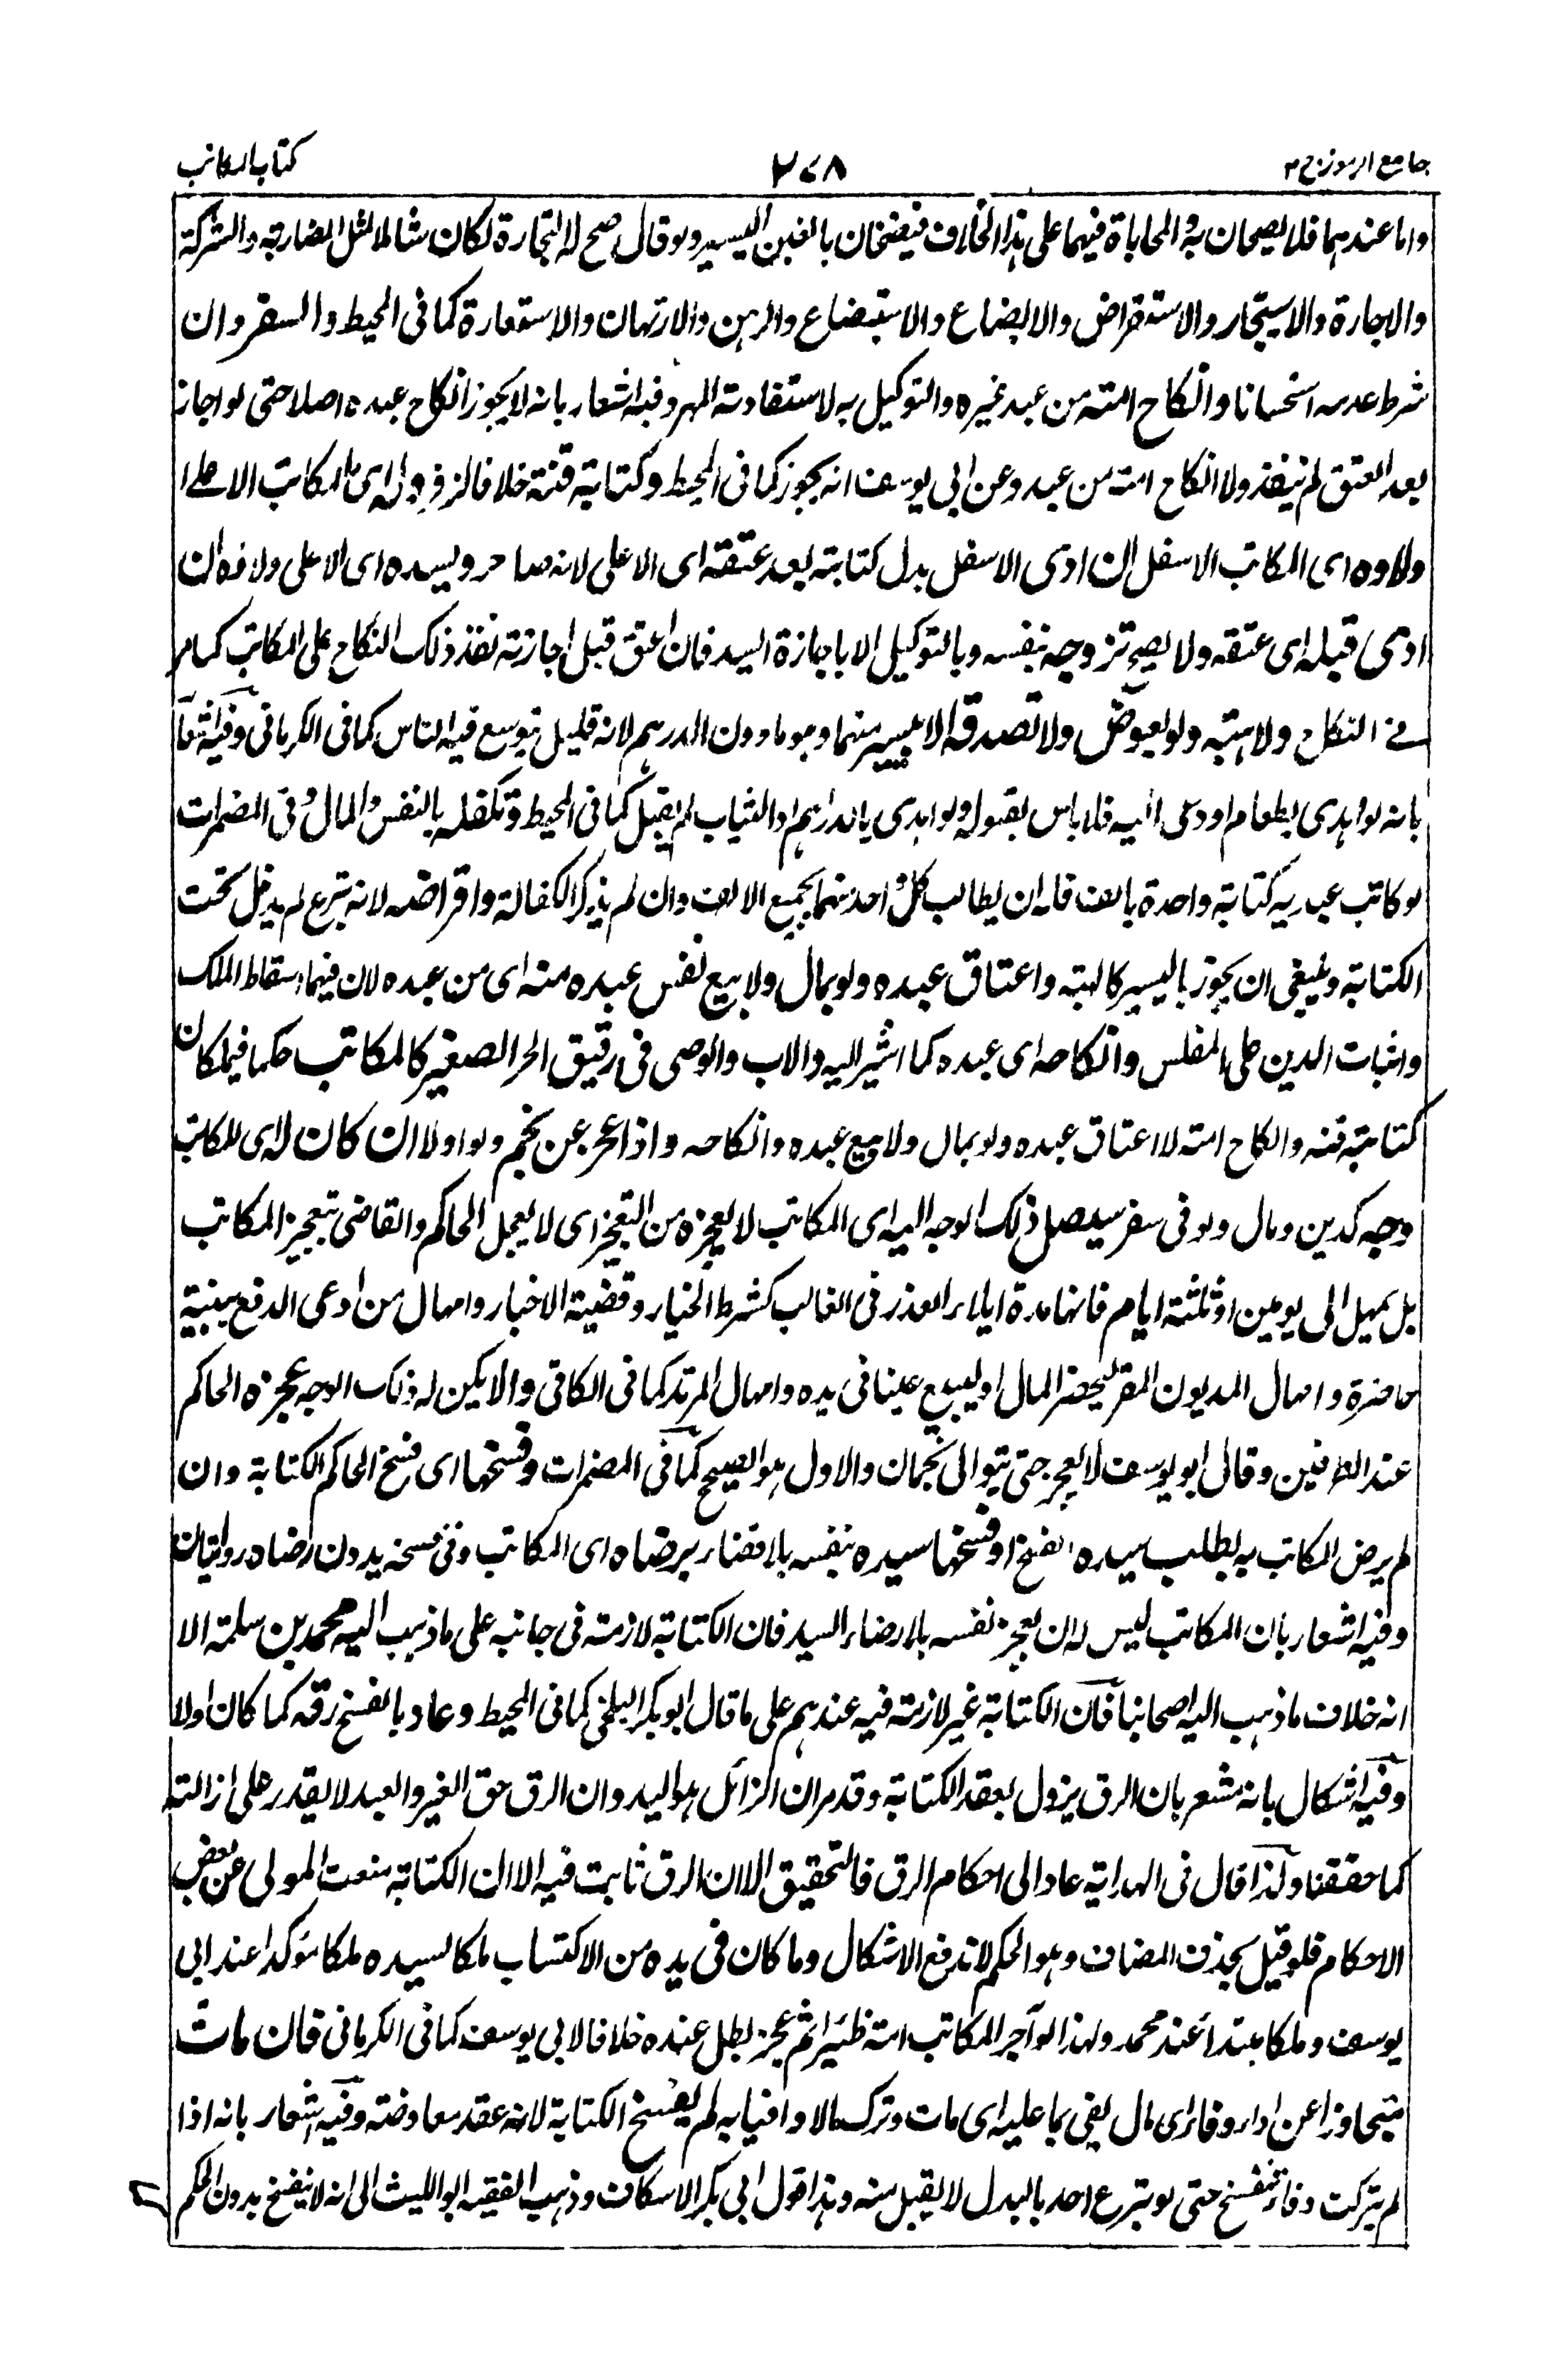 جامع الرموز ج ٢
٢٧٨
كتاب المكاتب
واما عندهما فلا يصحان به والمحاباة فيهما على هذا الخلاف فيصحان بالغبن اليسير ولو قال صح له التجارة لكان شاملا لمثل المضاربة والشركة
والاجارة والاستيجار والاستقراض والابضاع والاستبضاع والرهن والارتهان والاستعارة كما فى المحيط والسفر وان
شرط عدمه استحسانا وانكاح امته من عبد غيره والتوكيل به لاستفادته المهر وفيه اشعار بانه لا يجوز انكاح عبده اصلا حتى لو اجاز
بعد العتق لم ينفذ ولا انكاح امته من عبده وعن ابى يوسف انه يجوز كما فى المحيط وكتابة قنه خلافا لزفر وله اى المكاتب الاعلى
ولاوه اى المكاتب الاسفل ان ادى الاسفل بدل كتابته بعد عتقه اى الاعلى لانه صار حر ولسيده اى الاعلى ولاؤه ان
ادى قبله اى عتقه ولا يصح تزوجه بنفسه وبالتوكيل الا باجازة السيد فان اعتق قبل اجازته نفذ ذلك النكاح على المكاتب كما مر
فى النكاح ولا هبته ولو بعوض ولا تصدقه الا بيسير منهما وهو ما دون الدرهم لانه قليل توسع فيه الناس كما فى الكرمانى وفيه اشعار
بانه لو اهدى بطعام او دعى اليه فلا باس بقبوله ولو اهدى بالدراهم او الثياب لم يقبل كما فى المحيط وتكفله بالنفس والمال وفى المضمرات
لو كاتب عبديه كتابة واحدة بالف فله ان يطالب كل واحد منهما بجميع الالف وان لم يذكر الكفالة واقراضه لانه تبرع لم يدخل تحت
الكتابة وينبغى ان يجوز باليسير كالهبة واعتاق عبده ولو بمال ولا بيع نفس عبده منه اى من عبده لان فيهما اسقاط الملك
واثبات الدين على المفلس وانكاحه اى عبده كما اشير اليه والاب والوصى فى رقيق الحر الصغير كالمكاتب حكما فيملكان
كتابة قنه وانكاح امته لا اعتاق عبده ولو بمال ولا بيع عبده وانكاحه واذا عجز عن نجم ولو اولا ان كان له اى للمكاتب
وجه كدين ومال ولو فى سفر سيصل ذلك الوجه اليه اى المكاتب لا يعجزه من التعجيز اى لا يعجل الحاكم والقاضى بتعجيز المكاتب
بل يمهل الى يومين او ثلثة ايام فانها مدة ابلاء العذر فى الغالب كشرط الخيار وقضية الاخبار وامهال من ادعى الدفع ببينة
حاضرة وامهال المديون المقر ليحضر المال او ليبيع عينا فى يده وامهال المرتد كما فى الكافى والا يكن له ذلك الوجه عجزه الحاكم
عند الطرفين وقال ابو يوسف لا يعجز حتى يتوالى نجمان والاول هو الصحيح كما فى المضمرات وفسخها اى فسخ الحاكم الكتابة وان
لم يرض المكاتب به بطلب سيده الفسخ او فسخها سيده بنفسه بلا قضاء برضاه اى المكاتب وفى فسخه بدون رضاه روايتان
وفيه اشعار بان المكاتب ليس له ان يعجز نفسه بلا رضاء السيد فان الكتابة لازمة فى جانبه على ما ذهب اليه محمد بن سلمة الا
انه خلاف ما ذهب اليه اصحابنا فان الكتابة غير لازمة فيه عندهم على ما قال ابو بكر البلخى كما فى المحيط وعاد بالفسخ رقه كما كان اولا
وفيه اشكال بانه مشعر بان الرق يزول بعقد الكتابة وقد مر ان الزائل هو اليد وان الرق حق الغير والعبد لا يقدر على ازالته
كما حققنا ولذا قال فى الهداية عاد الى احكام الرق فالتحقيق الا ان الرق ثابت فيه الا ان الكتابة منعت المولى عن بعض
الاحكام فلو قيل بحذف المضاف وهو الحكم لاندفع الاشكال وما كان فى يده من الاكتساب ملكا لسيده ملكا مؤكدا عند ابى
يوسف وملكا مبتدأ عند محمد ولهذا لو آجر المكاتب امته ظئرا ثم عجز بطل عنده خلافا لابى يوسف كما فى الكرمانى فان مات
متجاوزا عن اداء وفاء اى مال يفى بما عليه اى مات وترك مالا وافيا به لم يفسخ الكتابة لانه عقد معاوضة وفيه اشعار بانه اذا
لم يترك وفاء تنفسخ حتى لو تبرع احد بالبدل لا يقبل منه وهذا قول ابى بكر الاسكاف وذهب الفقيه ابو الليث الى انه لا ينفسخ بدون الحكم